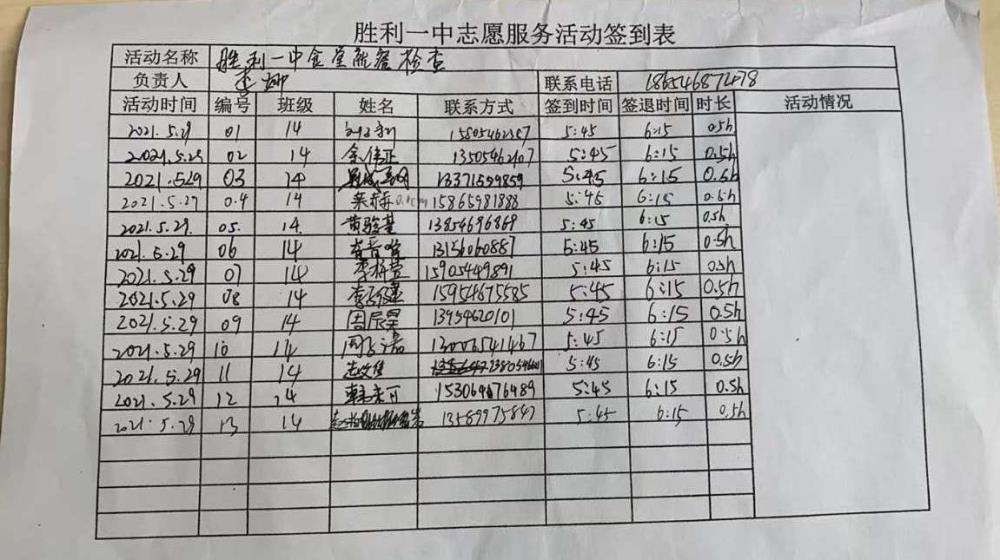 胜利一中志愿服务活动签到表
活动名称 胜利一中食堂就餐检查
负责人 李娜 联系电话 18654687478
活动时间 编号 班级 姓名 联系方式 签到时间 签退时间 时长 活动情况
2021.5.29 01 14 5:45 6:15 0.5h
2021.5.29 02 14 13505462107 5:45 6:15 0.5h
2021.529 03 14 13371559859 5:45 6:15 0.5h
2021.5.27 04 14 15865981888 5:45 6:15 0.5h
2021.5.29. 05. 14 黄骏基 13854696869 5:45 6:15 0.5h
2021.5.29 06 14 13156060887 5:45 6:15 0.5h
2021.5.29 07 14 15905449891 5:45 6:15 0.5h
2021.5.29 08 14 15954675585 5:45 6:15 0.5h
2021.5.29 09 14 周辰昊 13954620101 5:45 6:15 0.5h
2021.5.29 10 14 13006541467 5:45 6:15 0.5h
2021.5.29 11 14 5:45 6:15 0.5h
2021.5.29 12 14 韩未可 153069676489 5:45 6:15 0.5h
2021.5.29 13 14 13589975847 5:45 6:15 0.5h